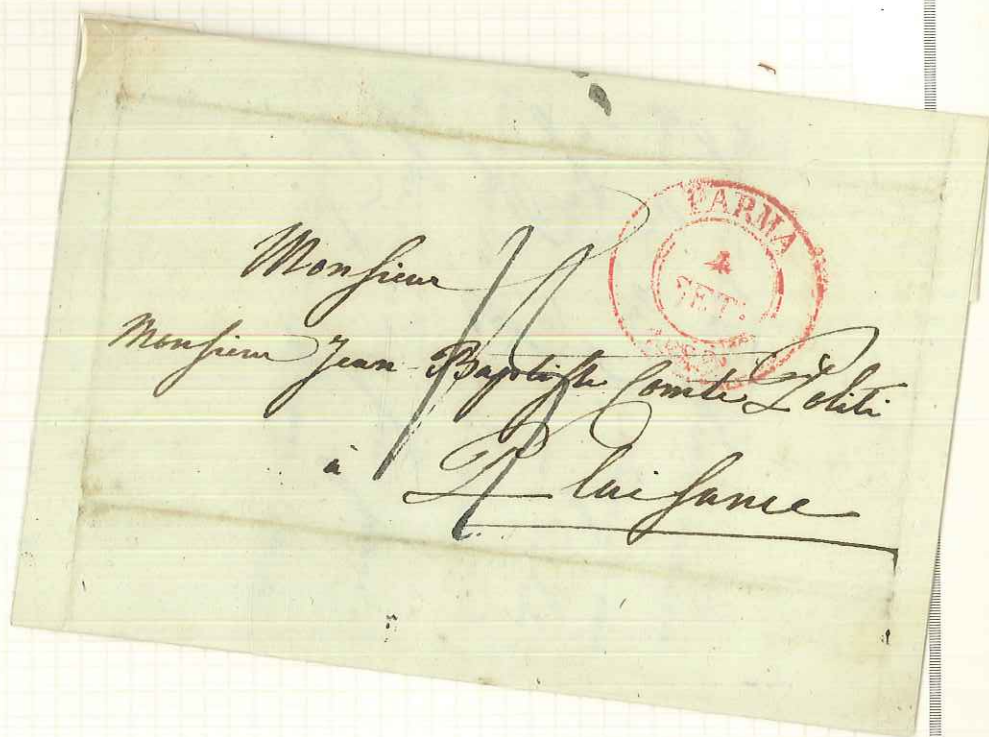 PARMA
4
SETT.
Monsieur
Monsieur Jean-Baptiste Comte Politi
à Plaisance